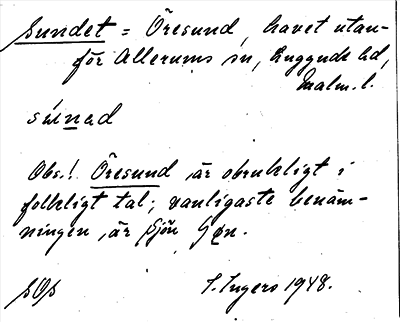 Sundet = Öresund, havet utan-
för Allerums sn, Luggude hd,
Malm. l.
súnad
Obs.! Öresund är obrukligt i
folkligt tal; vanligaste benäm-
ningen är Sjön
S. Ingers 1948.